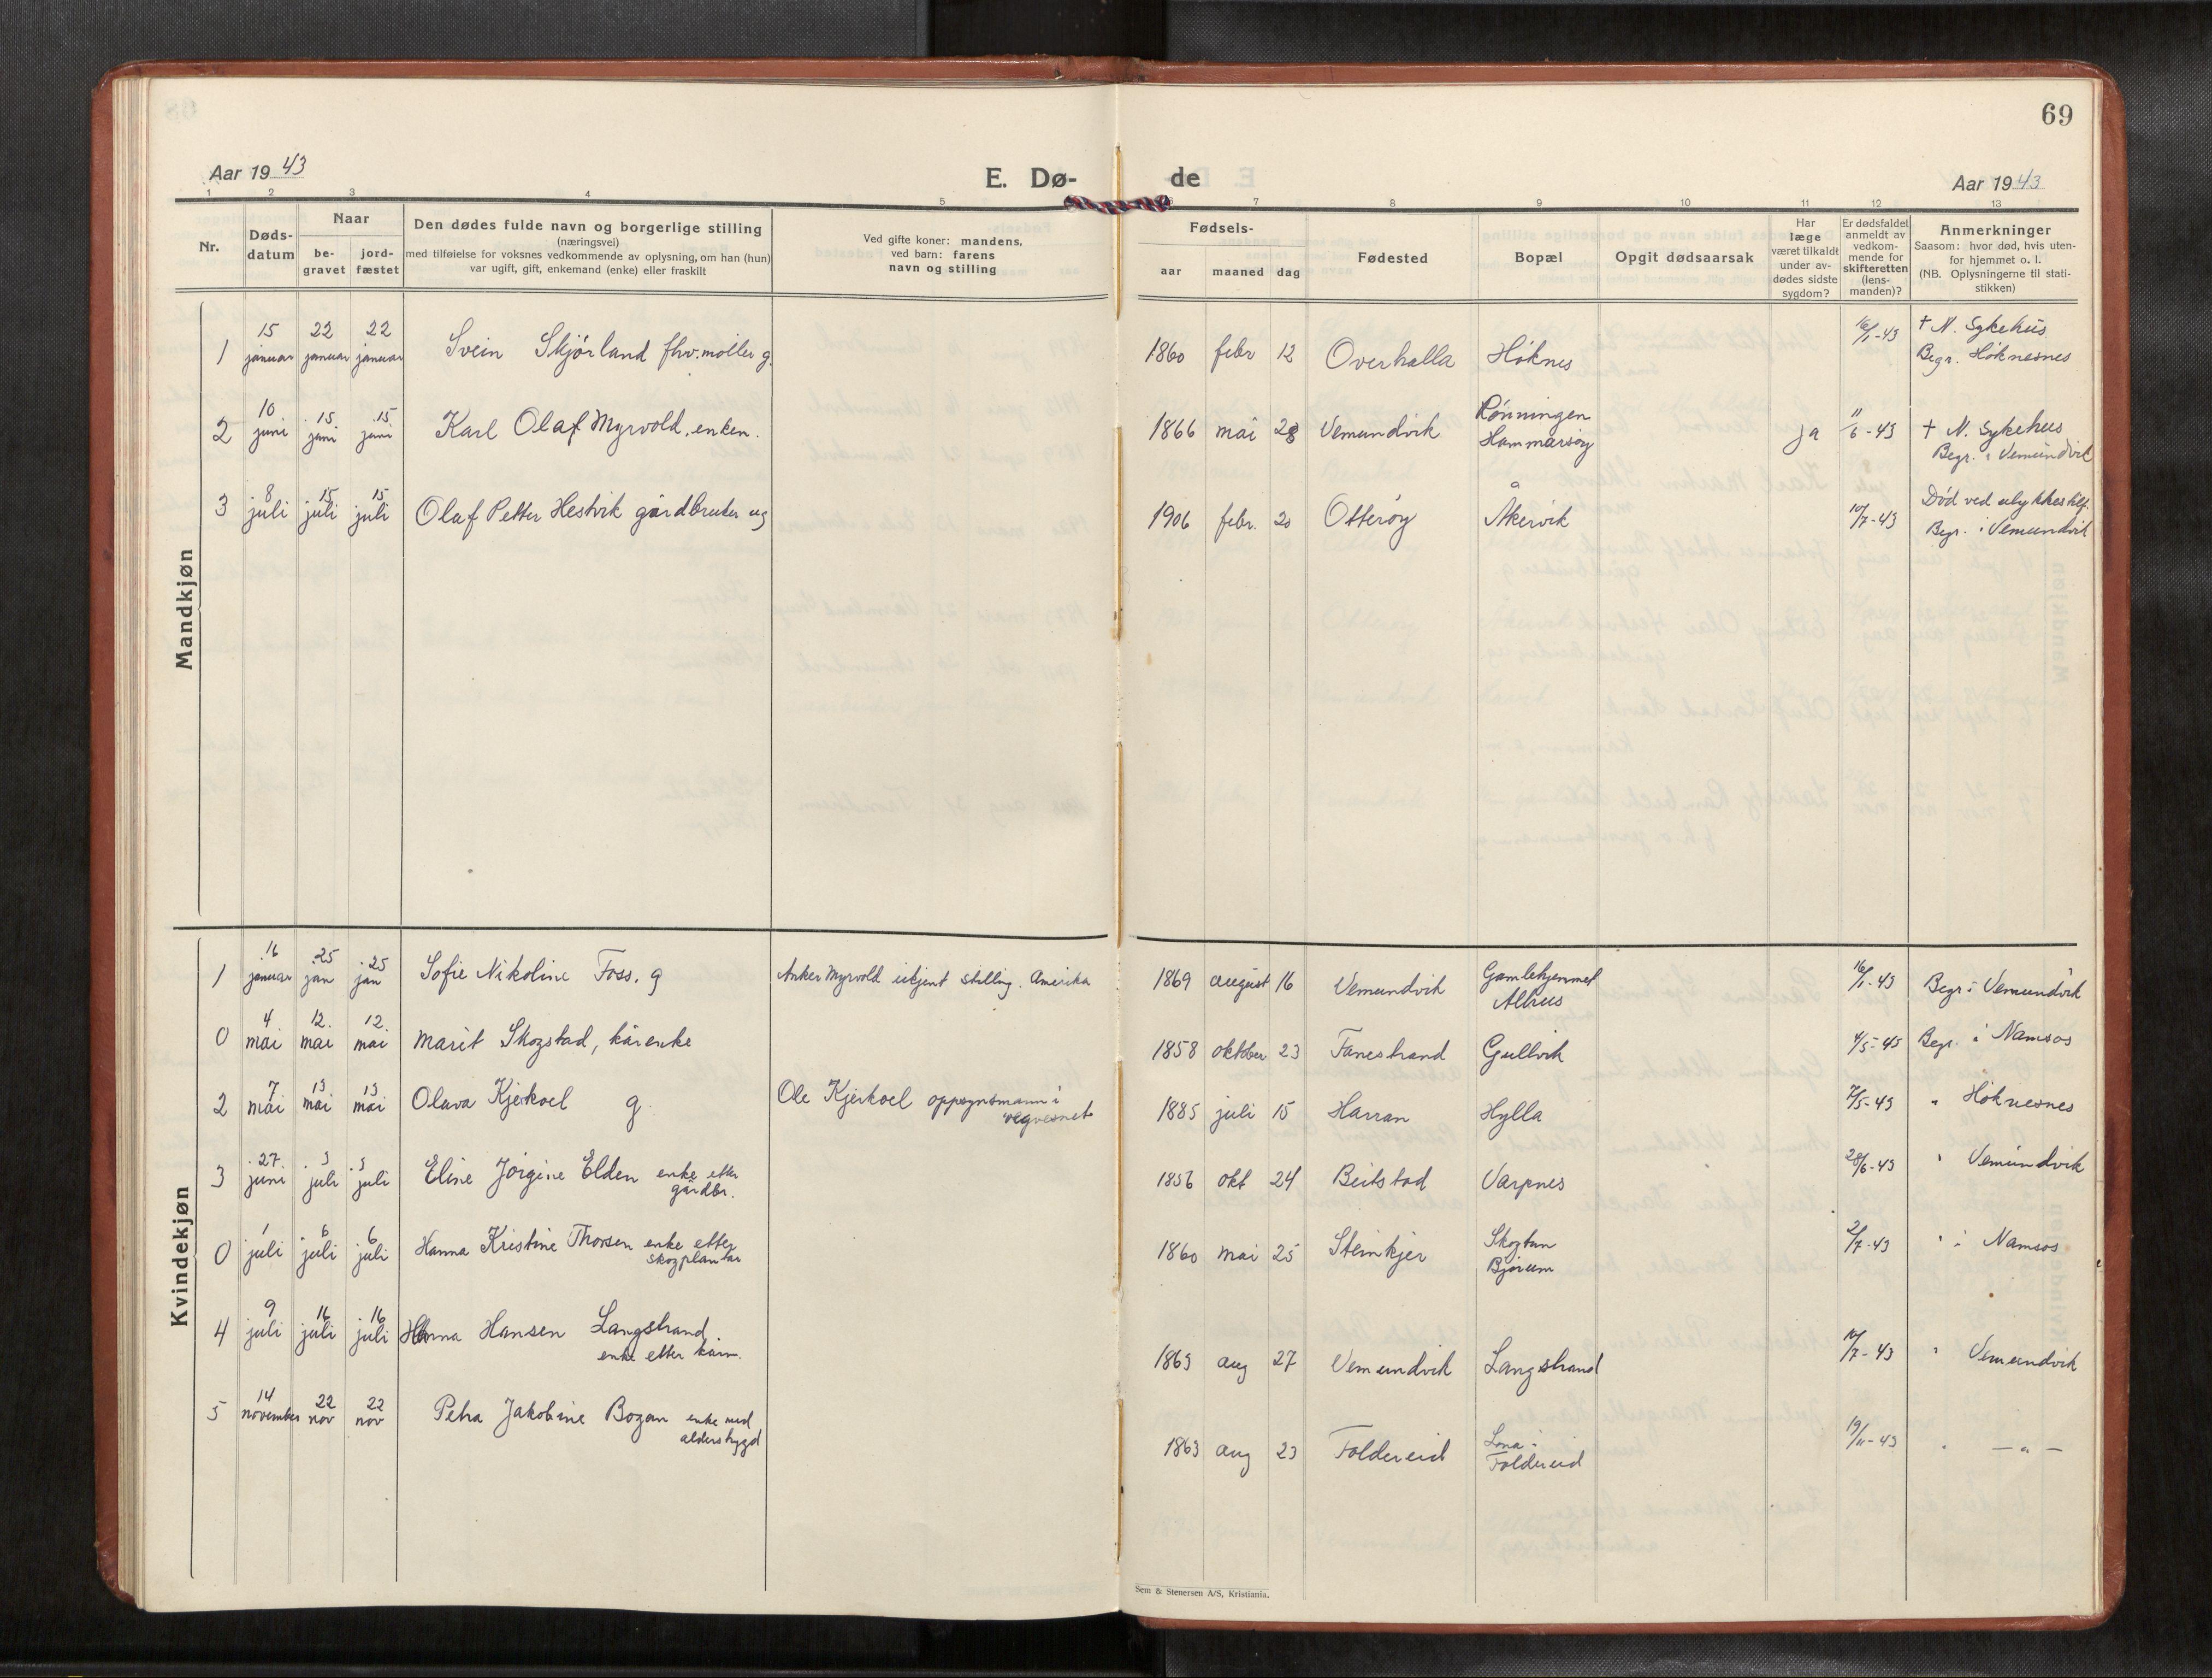 69
Aar 1943
E. Dø- de
Aar 1943
1 2 3 4 5 7 8 9 10 11 12 13
Nr.
Døds-
datum
Naar
be-
gravet
jord-
fæstet
Den dødes fulde navn og borgerlige stilling
(næringsvei)
med tilføielse for voksnes vedkommende av oplysning, om han (hun)
var ugift, gift, enkemand (enke) eller fraskilt
Ved gifte koner: mandens,
ved barn: farens
navn og stilling
Fødsels-
aar maaned dag
Fødested
Bopæl
Opgit dødsaarsak
Har
læge
været tilkaldt
under av-
dødes sidste
sygdom?
Er dødsfaldet
anmeldt av
vedkom-
mende for
skifteretten
(lens-
manden)?
Anmerkninger
Saasom: hvor død, hvis uten-
for hjemmet o. l.
(NB. Oplysningerne til stati-
stikken)
Mandkjøn
1 15 januar 22 januar 22 januar Svein Skjørland fhv. møller g. 1860 febr 12 Overhalla Høknes 16/1-43 † N. Sykehus
Begr. Høknesnes
2 10 juni 15 juni 15 juni Karl Olaf Myrvold, enkem. 1866 mai 28 Vemundvik Rønningen
Hammarsøy ja 11/6-43 † N. Sykehus
Begr. i Vemundvik
3 8 juli 15 juli 15 juli Olaf Petter Hestvik gårdbruker ug 1906 febr. 20 Otterøy Åkervik 10/7-43 Død ved ulykkestilf.
Begr. i Vemundvik
Kvindekjøn
1 16 januar 25 jan 25 jan Sofie Nikoline Foss. g Anker Myrvold ukjent stilling. Amerika 1869 august 16 Vemundvik Gamlehjemmet
Alhus 16/1-43 Begr i Vemundvik
0 4 mai 12. mai 12. mai Marit Skogstad, kårenke 1858 oktober 23 Fanestrand Gullvik 4/5-45 Begr. i Namsos
2 7 mai 13 mai 13 mai Olava Kjerkoel g Ole Kjerkoel oppsynsmann i
vegvesnet 1885 juli 15 Harran Hylla 7/5-43 " Høknesnes
3 27. juni 3 juli 3 juli Eline Jørgine Elden enke etter
gårdbr. 1856 okt 24 Beitstad Varpnes 28/6-43 " Vemundvik
0 1 juli 6 juli 6 juli Hanna Kristine Thorsen enke etter
skogplantar 1860 mai 25 Steinkjer Skogtun
Bjørum 2/7-43 " i Namsos
4 9 juli 16 juli 16 juli Hansen Langstrand.
enke etter kårm. 1863 aug 27 Vemundvik Langstrand 10/7-43 " Vemundvik
5 14 november 22 nov 22 nov Petra Jakobine Bogan enke med
alderstrygd 1863 aug 23 Foldereid
Foldereid 19/11-43 " — " —
Sem & Stenersen A/S, Kristiania.